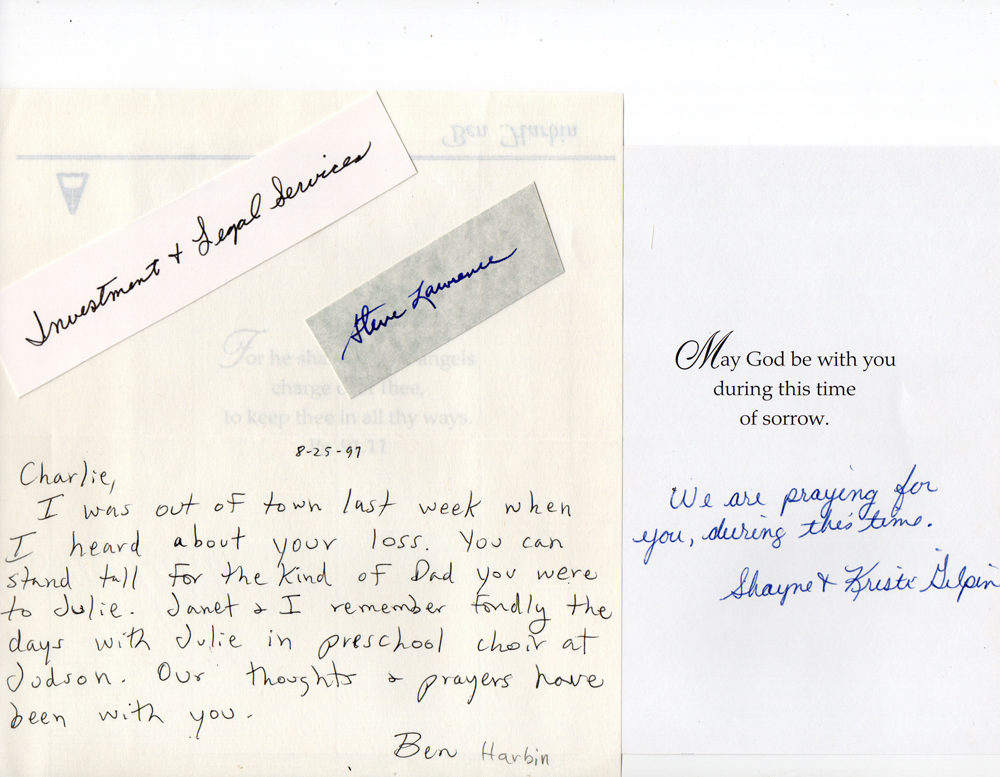 Ben Harbin
Investment + Legal Services
Steve Lawrence
For he sha angels
charge thee,
to keep thee in all thy ways.
8-25-97
Charlie,
I was out of town last week when
I heard about your loss. You can
stand tall for the kind of Dad you were
to Julie. Janet & I remember fondly the
days with Julie in preschool choir at
Judson. Our thoughts & prayers have
been with you.
Ben Harbin
May God be with you
during this time
of sorrow.
We are praying for
you, during this time.
Shayne & Kristi Gilpin